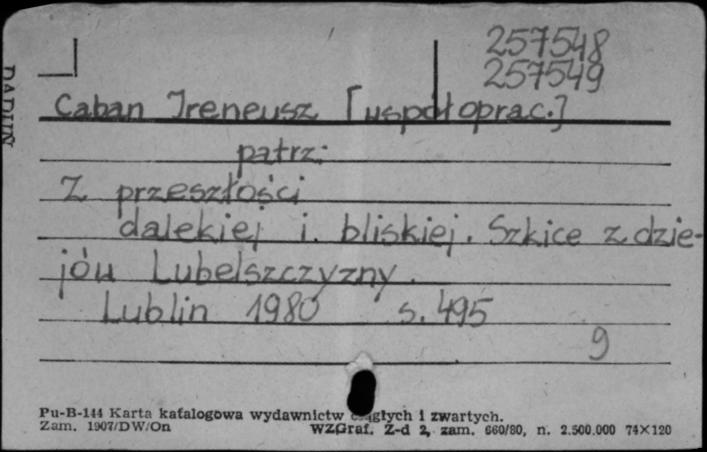 257548
257549
Caban Ireneusz [współoprac.]
patrz:
Z przeszłości
dalekiej i bliskiej. Szkice z dzie-
jów Lubelszczyzny.
Lublin 1980 s. 495
9
Pu-B-144 Karta katalogowa wydawnictw ciągłych i zwartych.
Zam. 1907/DW/On WZGraf. Z-d 2, zam. 660/80, n. 2.500.000 74×120